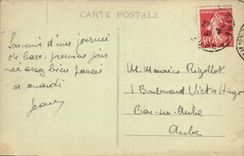 CARTE POSTALE
Souvenir d'une journée
de lace. première journée
assez bien passée
a mardi
Jean
M. Maurice Rigollot
1 Boulevard Victor Hugo
Bar-sur-Aube
Aube